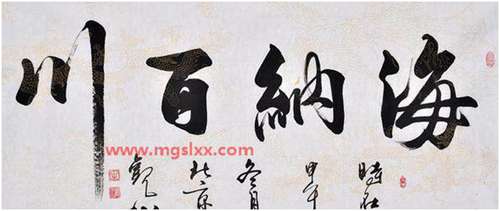 海納百川
www.mgslxx.com
時在
甲午
冬月
北京